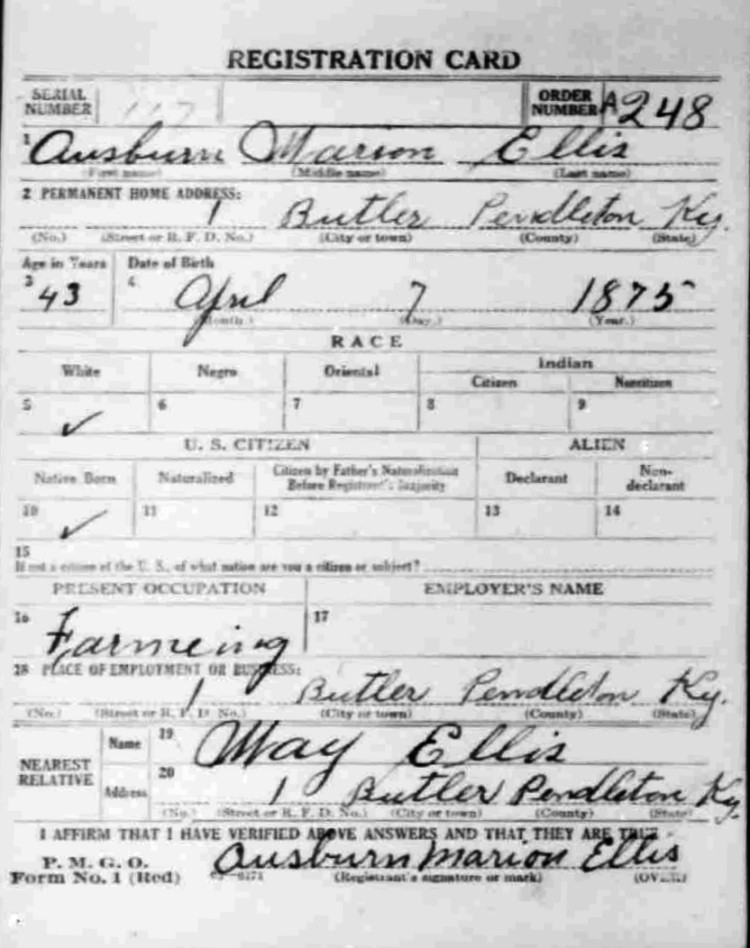 REGISTRATION CARD
SERIAL NUMBER 117 ORDER NUMBER A248
1 Ausburn Marion Ellis
(First name) (Middle name) (Last name)
2 PERMANENT HOME ADDRESS:
1 Butler Pendleton Ky.
(No.) (Street or R. F. D. No.) (City or town) (County) (State)
Age in Years Date of Birth
3 43 4 April 7 1875
(Month.) (Day.) (Year.)
RACE
White Negro Oriental Indian
Citizen Noncitizen
5 ✓ 6 7 8 9
U. S. CITIZEN ALIEN
Native Born Naturalized Citizen by Father's Naturalization Before Registrant's Majority Declarant Non-declarant
10 ✓ 11 12 13 14
15
If not a citizen of the U. S., of what nation are you a citizen or subject?
PRESENT OCCUPATION EMPLOYER'S NAME
16 Farmeing 17
18 PLACE OF EMPLOYMENT OR BUSINESS:
1 Butler Pendleton Ky.
(No.) (Street or R. F. D. No.) (City or town) (County) (State)
NEAREST RELATIVE Name 19 May Ellis
Address 20 1 Butler Pendleton Ky.
(No.) (Street or R. F. D. No.) (City or town) (County) (State)
I AFFIRM THAT I HAVE VERIFIED ABOVE ANSWERS AND THAT THEY ARE TRUE
P. M. G. O.
Form No. 1 (Red) Ausburn Marion Ellis
(Registrant's signature or mark) (OVER)